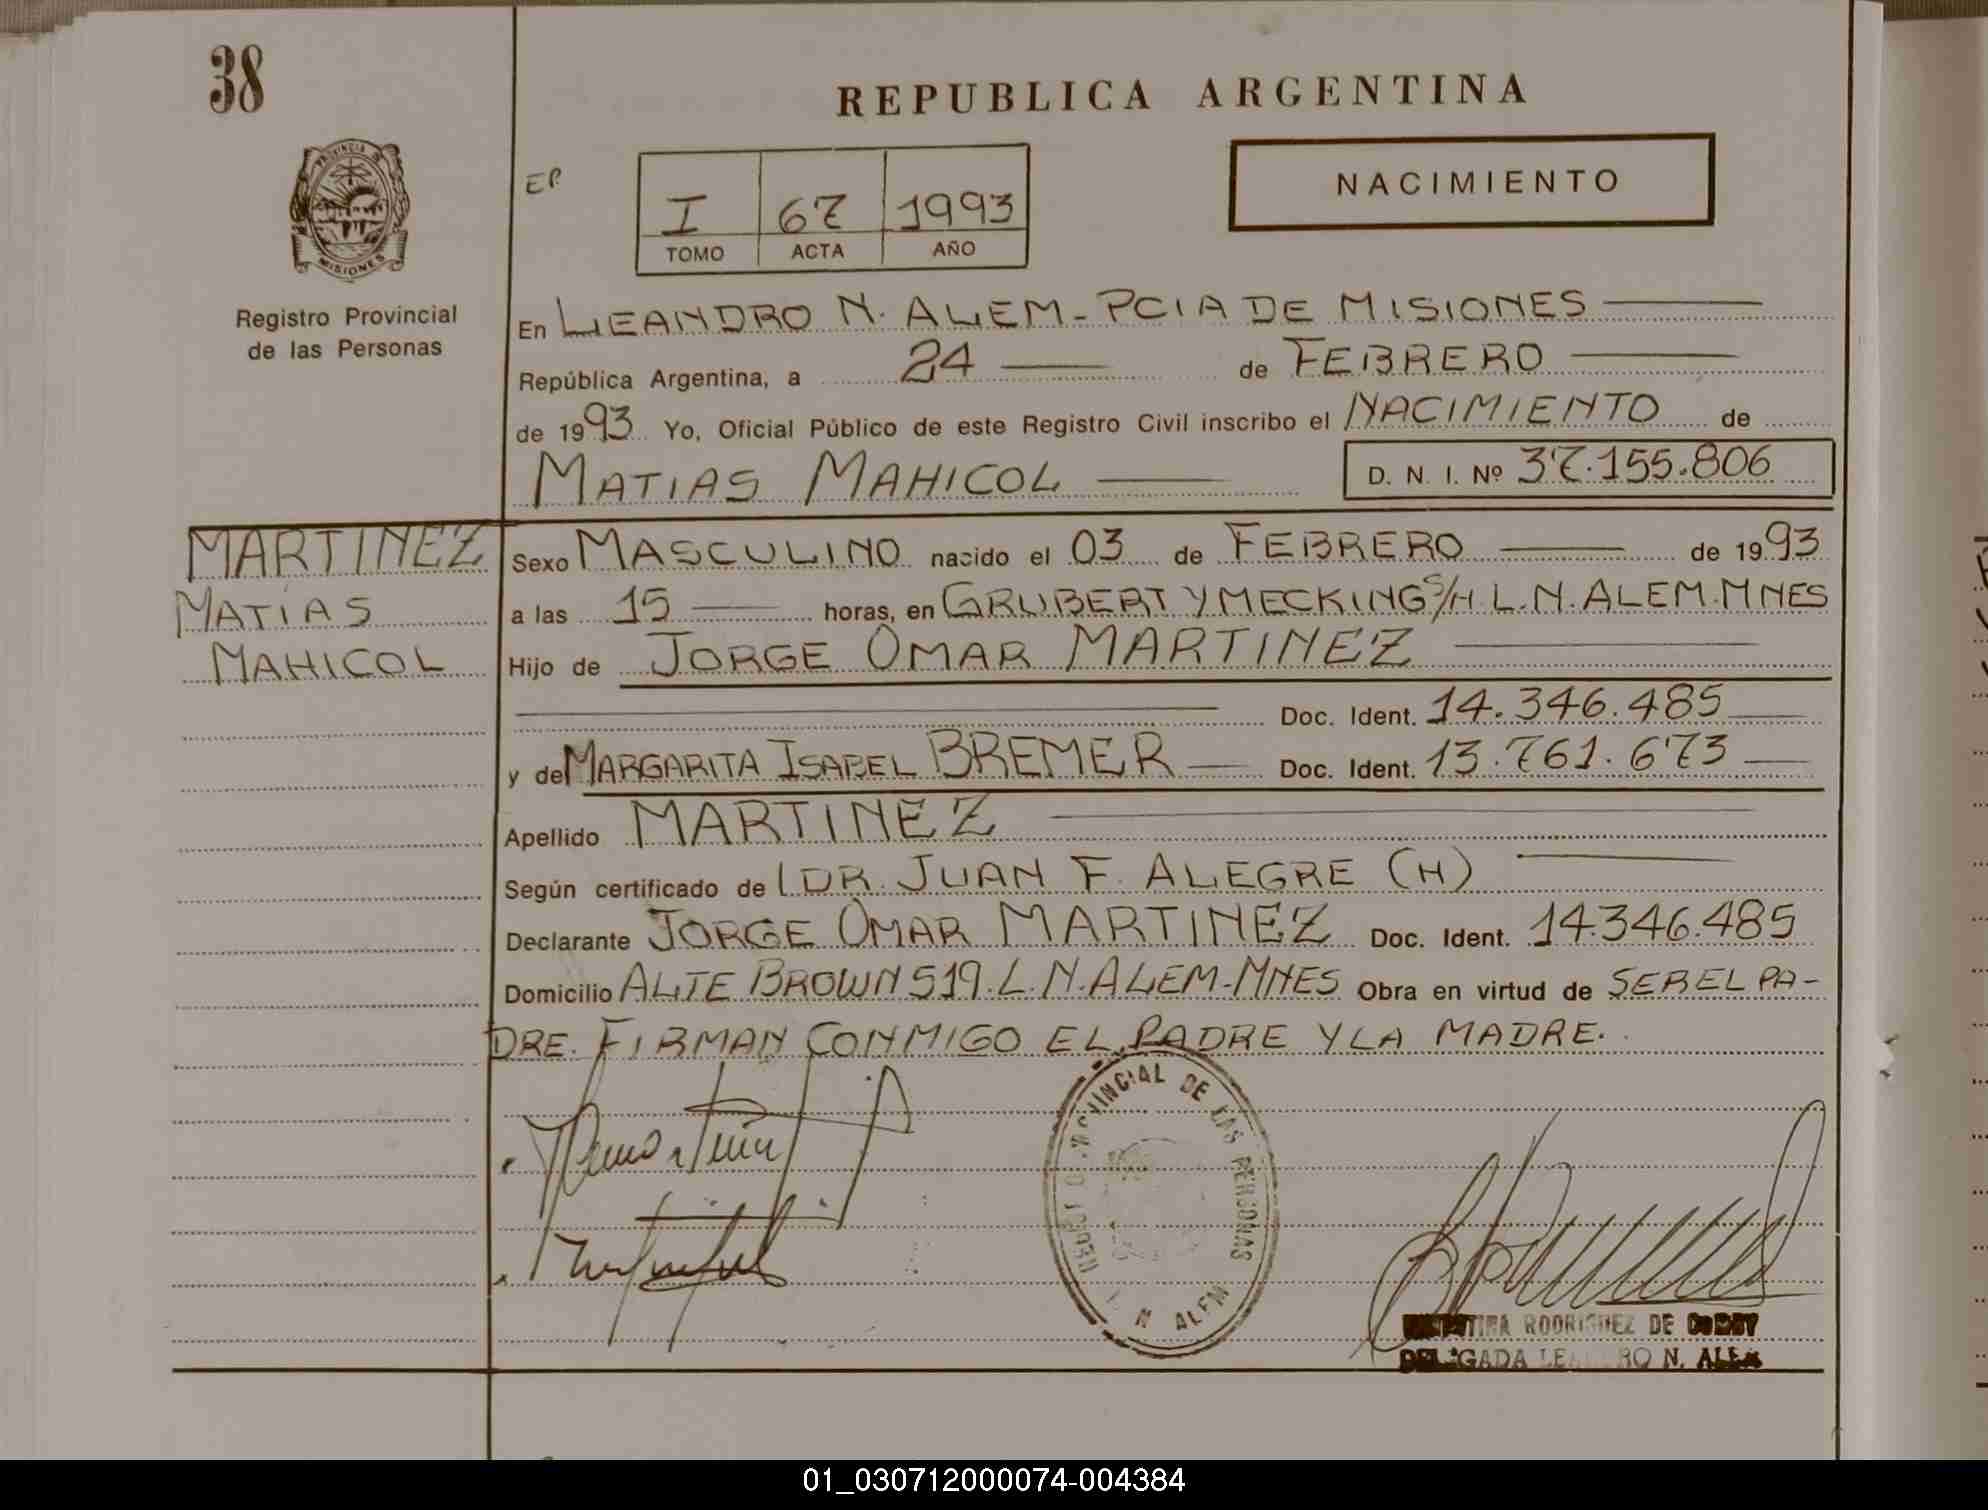 38
REPUBLICA ARGENTINA
PROVINCIA DE
MISIONES
Registro Provincial
de las Personas
EP.
I 67 1993
TOMO ACTA AÑO
NACIMIENTO
En LEANDRO N. ALEM - PCIA DE MISIONES
República Argentina, a 24 de FEBRERO
de 1993 Yo, Oficial Público de este Registro Civil inscribo el NACIMIENTO de
MATIAS MAHICOL D. N. I. Nº 37.155.806
MARTINEZ
MATIAS
MAHICOL
Sexo MASCULINO nacido el 03 de FEBRERO de 1993
a las 15 horas, en GRUBERT Y MECKING S/H L.N. ALEM. MNES
Hijo de JORGE OMAR MARTINEZ
Doc. Ident. 14.346.485
y de MARGARITA ISABEL BREMER Doc. Ident. 13.761.673
Apellido MARTINEZ
Según certificado de DR. JUAN F. ALEGRE (H)
Declarante JORGE OMAR MARTINEZ Doc. Ident. 14.346.485
Domicilio ALTE BROWN 519. L. N. ALEM - MNES Obra en virtud de SER EL PA-
DRE. FIRMAN CONMIGO EL PADRE Y LA MADRE.
PROVINCIAL DE LAS PERSONAS
N ALEM
RODRIGUEZ DE
DELEGADA LEANDRO N. ALEM
01_030712000074-004384